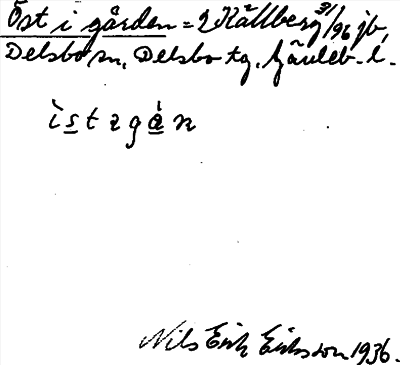 Öst i gården = 2 Källberg 2 31/96 jb,
Delsbo sn, Delsbo tg, Gävleb. l.
ìstzgán
Nils Erik Eriksson 1936.